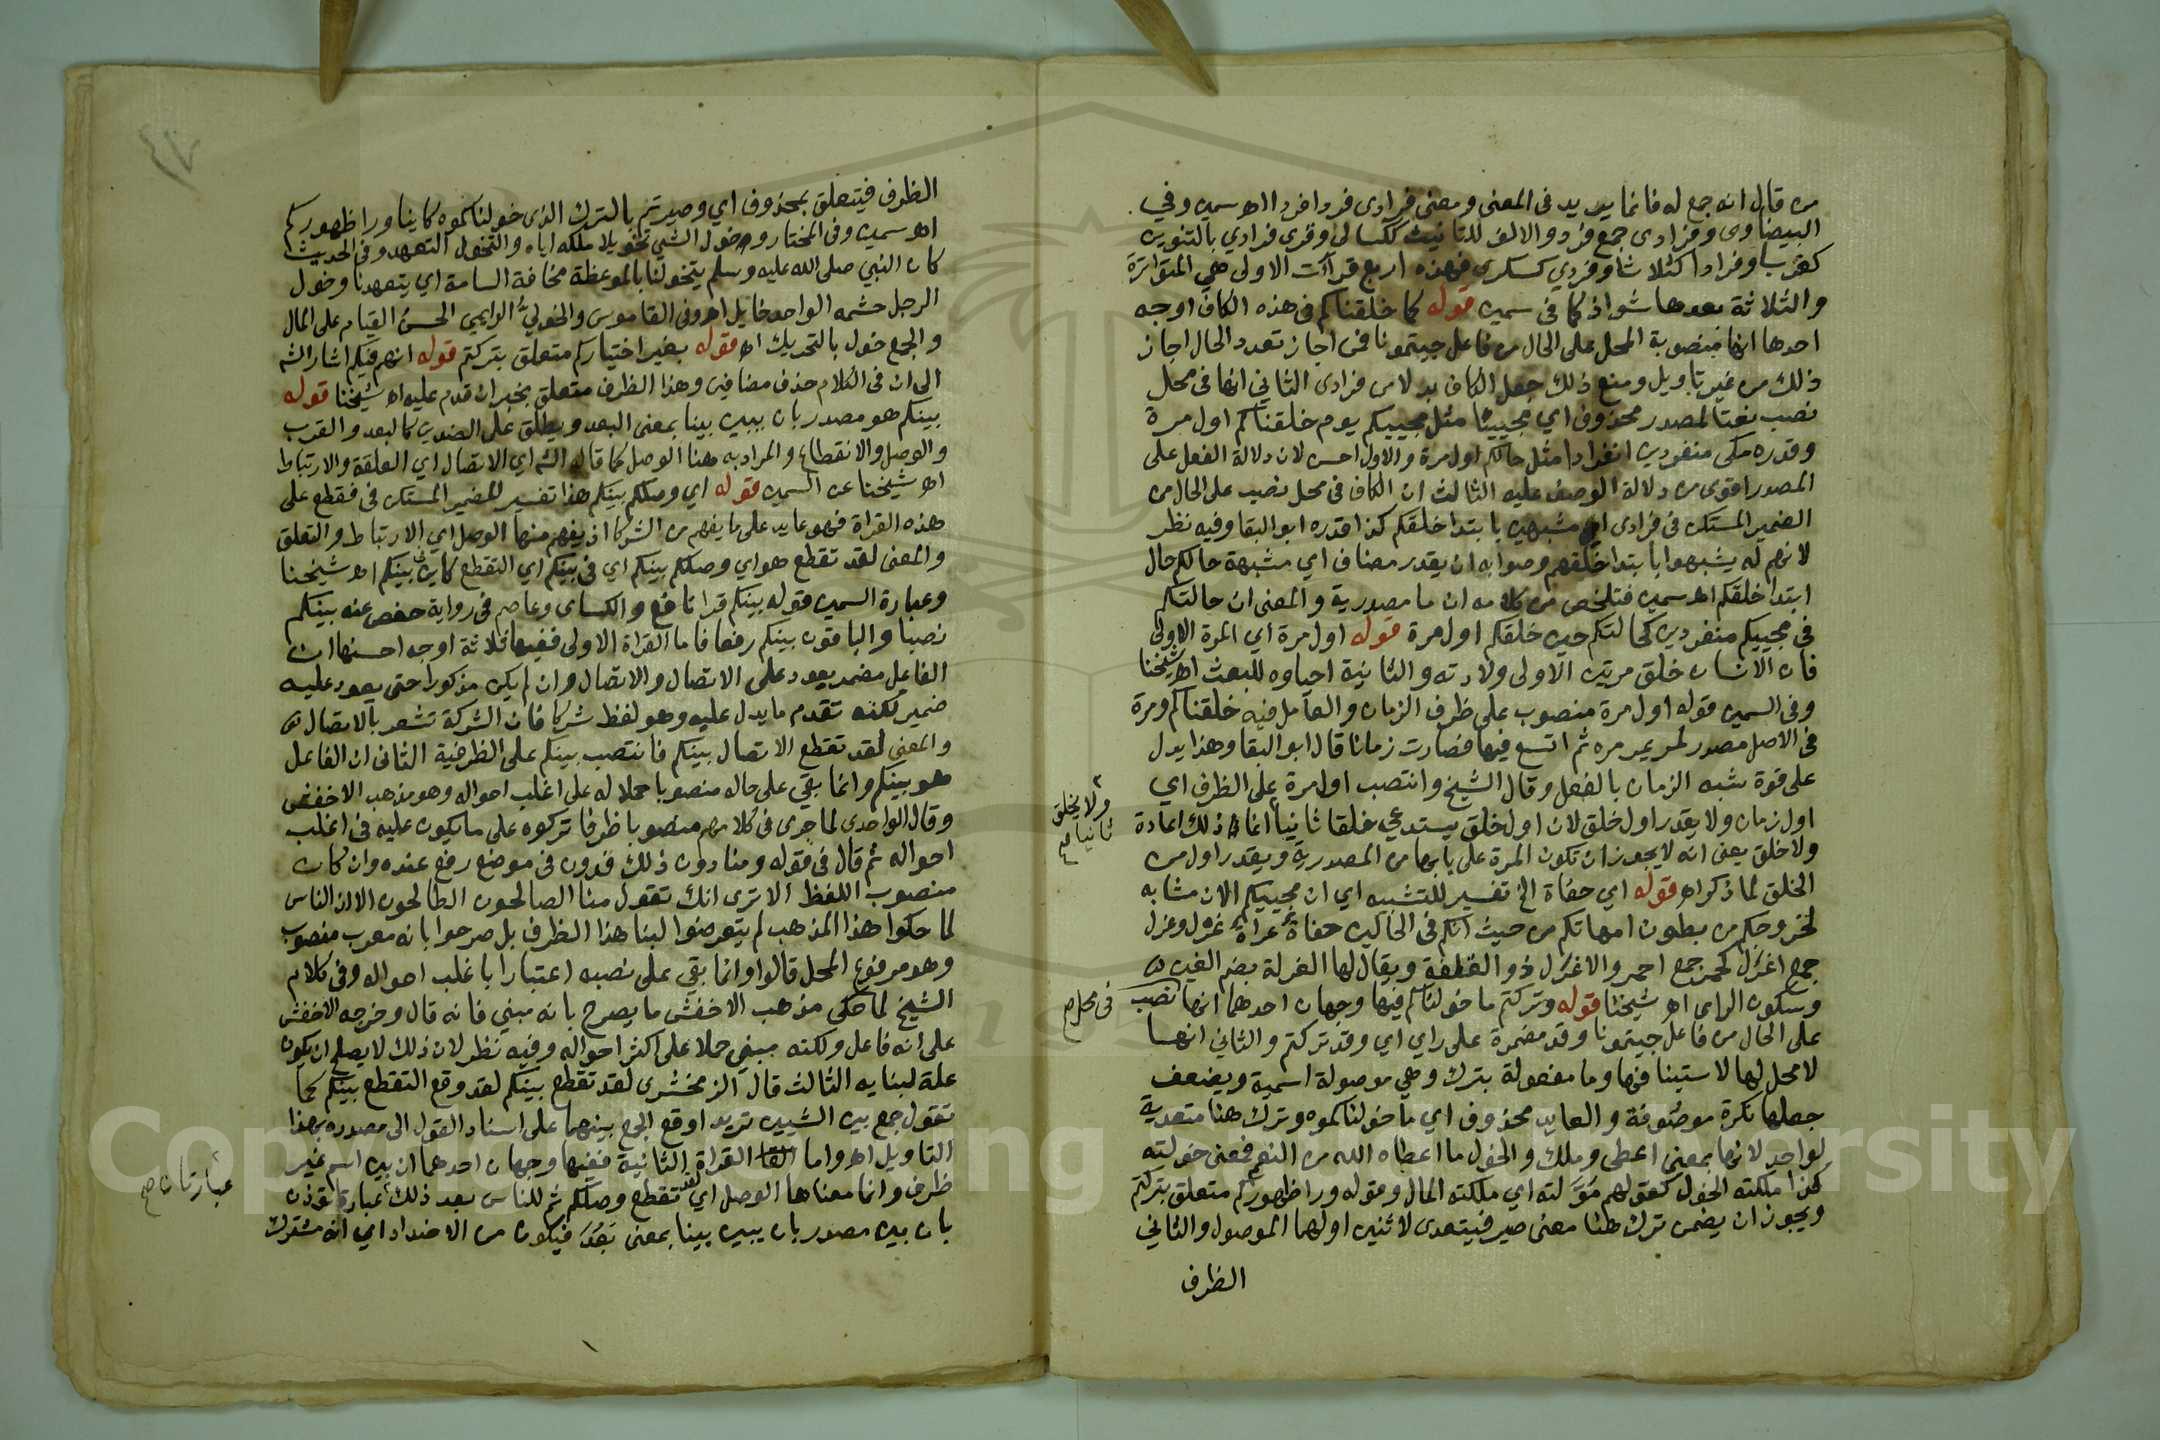 من قال انه جمع له فانما يريد فى المعنى ومعنى فرادى فردا فردا اه سمين وفي
البيضاوى وفرادى جمع فرد والالف للتانيث ككسالى وقرى فرادي بالتنوين
كغراب وفرادا كثلاث وفردي كسكرى فهذه اربع قراآت الاولى هي المتواترة
والثلاثة بعدها شواذ كما فى سمين قوله كما خلقناكم فى هذه الكاف اوجه
احدها انها منصوبة المحل على الحال من فاعل جيتمونا فمن اجاز تعدد الحال اجاز
ذلك من غير تاويل ومنع ذلك جعل الكاف بدلا من فرادى الثاني انها فى محل
نصب نعتا لمصدر محذوف اي مجييئا مثل مجييكم يوم خلقناكم اول مرة
وقدره مكى منفردين انفرادا مثل حالكم اول مرة والاول احسن لان دلالة الفعل على
المصدر اقوى من دلالة الوصف عليه الثالث ان الكاف فى محل نصب على الحال من
الضمير المستكن فى فرادى اي مشبهين بابتدا خلقكم كذا قدره ابو البقا وفيه نظر
لانهم لم يشبهوا بابتدا خلقهم وصوابه ان يقدر مضاف اي مشبهة حالكم حال
ابتدا خلقكم اه سمين فتلخص من كلامه ان ما مصدرية والمعنى ان حالتكم
فى مجييكم منفردين كحالتكم حين خلقكم اول مرة قوله اول مرة اي المرة الاولى
فان الانسان خلق مرتين الاولى ولادته والثانية احياوه للبعث اه شيخنا
وفى السمين قوله اول مرة منصوب على ظرف الزمان والعامل فيه خلقناكم ومرة
فى الاصل مصدر لمر يمر مرة ثم اتسع فيها فصارت زمانا قال ابو البقا وهذا يدل
على قوة شبه الزمان بالفعل وقال الشيخ وانتصب اول مرة على الظرف اي
اول زمان ولا يقدر اول خلق لان اول خلق يستدعي خلقا ثانيا انما ذلك اعادة
ولا يخلق
ثانيا صح
ولا خلق يعنى انه لا يجوز ان تكون المرة على بابها من المصدرية ويقدر اول من
الخلق لما ذكر اه قوله اي حفاة الخ تفسير للتشبيه اي ان مجييكم الان مشابه
لخروجكم من بطون امهاتكم من حيث انكم فى الحالين حفاة عراة غرل وغرل
جمع اغرل كحمر جمع احمر والاغرل ذو القلفة ويقال لها الغرلة بضم الغين
وسكون الراى اه شيخنا قوله وتركتم ما خولناكم فيها وجهان احدهما انها نصب
فى محل صح
على الحال من فاعل جيتمونا وقد مضمرة على راي اي وقد تركتم والثاني انها
لا محل لها لاستينافها وما مفعولة بترك وهي موصولة اسمية ويضعف
جعلها نكرة موصوفة والعايد محذوف اي ما خولناكموه وترك هنا متعدية
لواحد لانها بمعنى اعطى وملك والخول ما اعطاه الله من النعم فمعنى خولته
كذا ملكته الخول كقولهم مولته اي ملكته المال وقوله ورا ظهوركم متعلق بتركتم
ويجوز ان يضمن ترك هنا معنى صير فيتعدى لاثنين اولهما الموصول والثاني
الظرف
الظرف فيتعلق بمحذوف اي وصيرتم بالترك الذى خولناكموه كاينا ورا ظهوركم
اه سمين وفى المختار وخول الشي تخويلا ملكه اياه والتخول التعهد وفى الحديث
كان النبي صلى الله عليه وسلم يتخولنا بالموعظة مخافة السامة اي يتعهدنا وخول
الرجل حشمه الواحد خايل اه وفى القاموس والخولي الراعي الحسن القيام على المال
والجمع خول بالتحريك اه قوله بغير اختياركم متعلق بتركتم قوله انهم فيكم اشار الشه
الى ان فى الكلام حذف مضافين وهذا الظرف متعلق بخبر ان قدم عليه اه شيخنا قوله
بينكم هو مصدر بان يبين بينا بمعنى البعد ويطلق على الضدين كالبعد والقرب
والوصل والانقطاع والمراد به هنا الوصل كما قال الشه اي الاتصال اي العلقة والارتباط
اه شيخنا عن السمين قوله اي وصلكم بينكم هذا تفسير للضمير المستكن فى فقطع على
هذه القراة فهو عايد على ما يفهم من الشركا اذ يفهم منها الوصل اي الارتباط والتعلق
والمعنى لقد تقطع هو اي وصلكم بينكم اي فى بينكم اي التقطع كاين فى بينكم اه شيخنا
وعبارة السمين قوله بينكم قرا نافع والكساى وعاصم فى رواية حفص عنه بينكم
نصبا والباقون بينكم رفعا فاما القراة الاولى ففيها ثلاثة اوجه احسنها ان
الفاعل مضمر يعود على الاتصال والاتصال وان لم يكن مذكورا حتى يعود عليه
ضمير لكنه تقدم ما يدل عليه وهو لفظ شركا فان الشركة تشعر بالاتصال
والمعنى لقد تقطع الاتصال بينكم فانتصب بينكم على الظرفية الثانى ان الفاعل
هو بينكم وانما بقي على حاله منصوبا حملا له على اغلب احواله وهو مذهب الاخفش
وقال الواحدى لما جرى فى كلامهم منصوبا ظرفا تركوه على ما يكون عليه فى اغلب
احواله ثم قال فى قوله ومنا دون ذلك فدون فى موضع رفع عنده وان كان
منصوب اللفظ الا ترى انك تقول منا الصالحون الطالحون الا ان الناس
لما حكوا هذا المذهب لم يتعرضوا لبنا هذا الظرف بل صرحوا بانه معرب منصوب
وهو مرفوع المحل قالوا وانما بقي على نصبه اعتبارا باغلب احواله وفى كلام
الشيخ لما حكى مذهب الاخفش ما يصرح بانه مبني فانه قال وخرجه الاخفش
على انه فاعل ولكنه مبني حملا على اكثر احواله وفيه نظر لان ذلك لا يصلح ان يكون
علة لبنايه الثالث قال الزمخشرى لقد تقطع بينكم لقد وقع التقطع بينكم كما
تقول جمع بين الشيين تريد اوقع الجمع بينهما على اسناد القول الى مصدره بهذا
التاويل اه واما القا القراة الثانية ففيها وجهان احدهما ان بين اسم غير
ظرف وانما معناها الوصل اي لقد تقطع وصلكم ثم للناس بعد ذلك عبارة تؤذن
عبارتان صح
بان بين مصدر بان يبين بينا بمعنى بَعُدَ فيكون من الاضداد اي انه مشترك